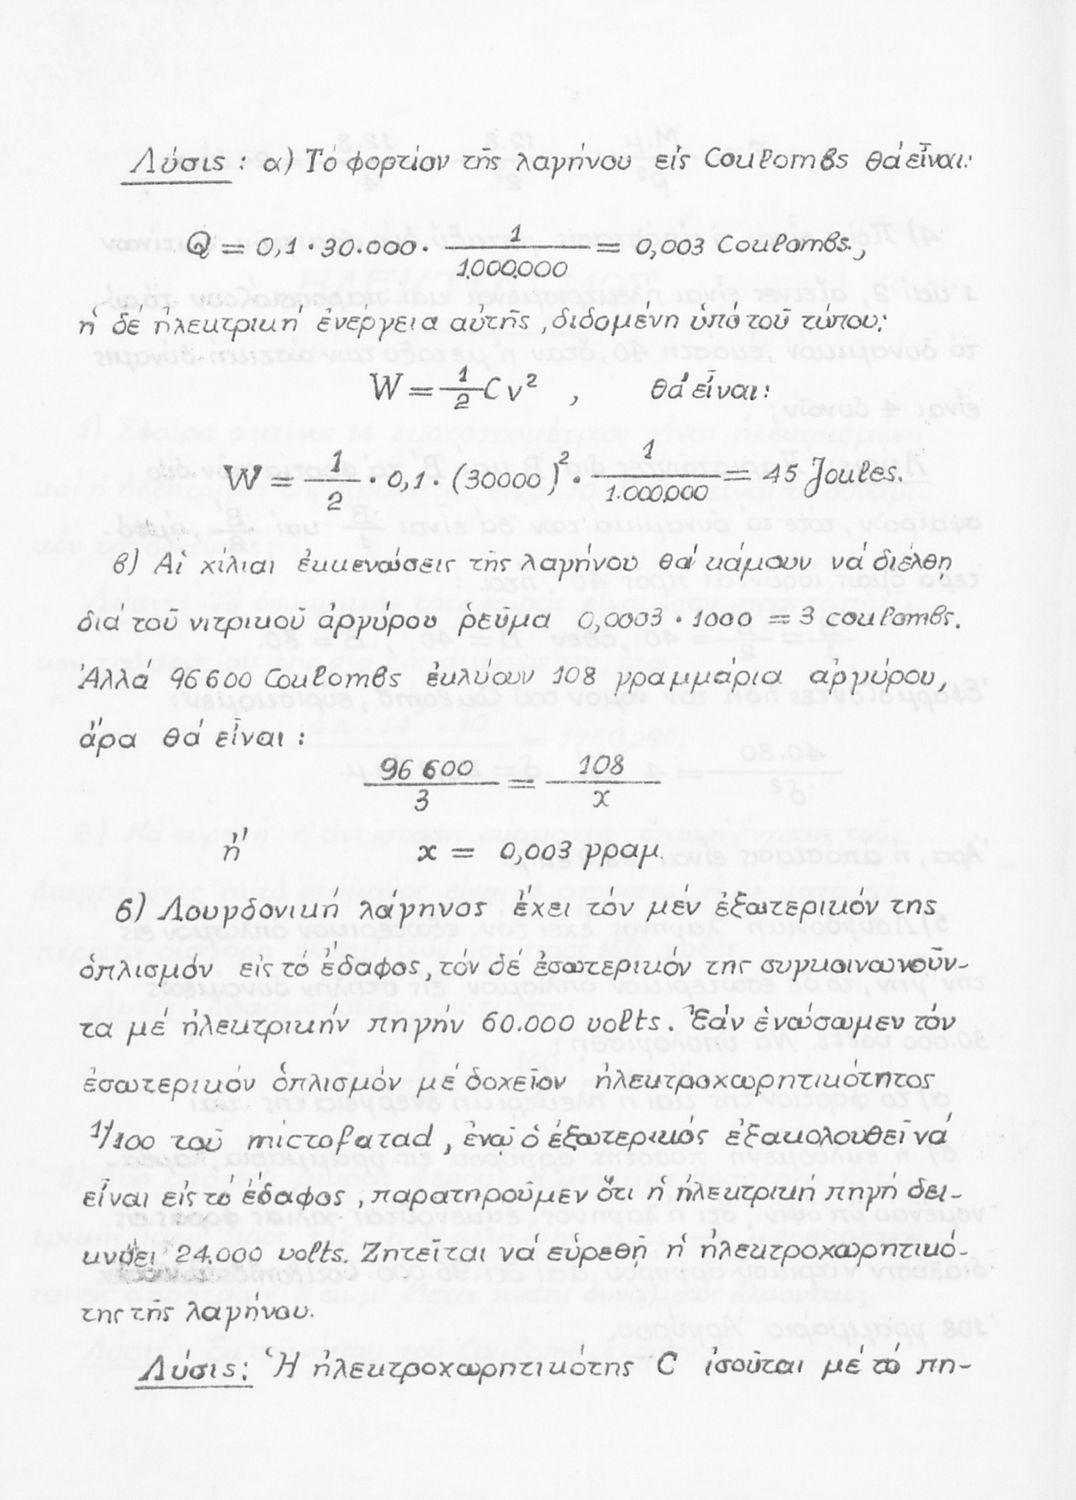 Λύσις : α) Τό φορτίον τῆς λαγήνου εἰς Coulombs θά εἶναι:
Q = 0,1 · 30.000 · 1/1.000.000 = 0,003 Coulombs.,
ἡ δέ ἠλεκτρική ἐνέργεια αὐτῆς, διδομένη ὑπό τοῦ τύπου:
W = 1/2 C v² , θά εἶναι:
W = 1/2 · 0,1 · (30000)² · 1/1.000.000 = 45 Joules.
β) Αἱ χίλιαι ἐκκενώσεις τῆς λαγήνου θά κάμουν νά διέλθῃ
διά τοῦ νιτρικοῦ ἀργύρου ῥεῦμα 0,0003 · 1000 = 3 coulombs.
Ἀλλά 96 600 Coulombs ἐκλύουν 108 γραμμάρια ἀργύρου,
ἄρα θά εἶναι :
96 600/3 = 108/x
ἤ x = 0,003 γραμ.
6) Λουγδονική λάγηνος ἔχει τόν μέν ἐξωτερικόν της
ὁπλισμόν εἰς τό ἔδαφος, τόν δέ ἐσωτερικόν της συγκοινωνοῦν-
τα μέ ἠλεκτρικήν πηγήν 60.000 volts. Ἐάν ἑνώσωμεν τόν
ἐσωτερικόν ὁπλισμόν μέ δοχεῖον ἠλεκτροχωρητικότητος
1/100 τοῦ microfarad, ἐνῷ ὁ ἐξωτερικός ἐξακολουθεῖ νά
εἶναι εἰς τό ἔδαφος, παρατηροῦμεν ὅτι ἡ ἠλεκτρική πηγή δει-
κνύει 24.000 volts. Ζητεῖται νά εὑρεθῇ ἡ ἠλεκτροχωρητικό-
της τῆς λαγήνου.
Λύσις: Ἡ ἠλεκτροχωρητικότης C ἰσοῦται μέ τό πη-